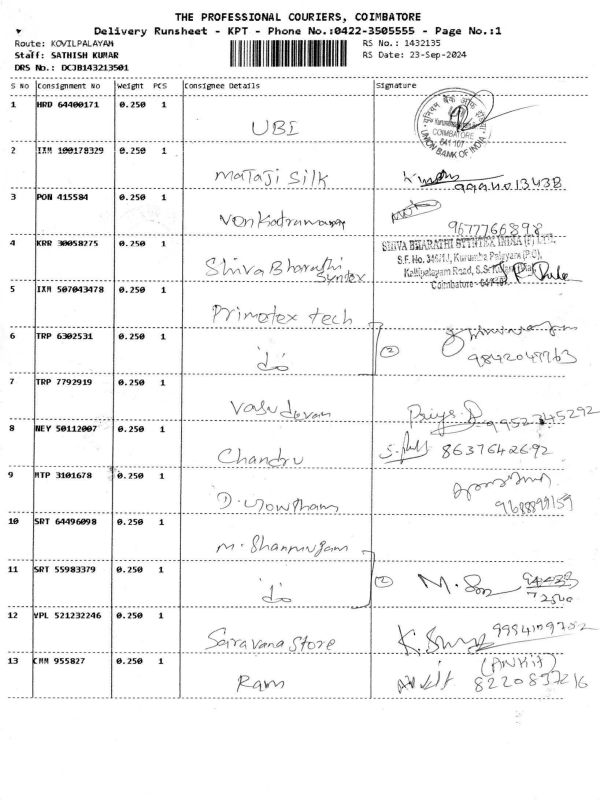 THE PROFESSIONAL COURIERS, COIMBATORE
Delivery Runsheet - KPT - Phone No.:0422-3505555 - Page No.:1
Route: KOVILPALAYAM RS No.: 1432135
Staff: SATHISH KUMAR RS Date: 23-Sep-2024
DRS No.: DCJB143213501
S No Consignment No Weight PCS Consignee Details Signature
1 HRD 64400171 0.250 1 UBI
COIMBATORE
641 107
UNION BANK OF INDIA
2 IXM 100178329 0.250 1 Mataji Silk
3 PON 415584 0.250 1 9677766898
4 KRR 30058275 0.250 1 Shiva Bharathi Syntex
SHIVA BHARATHI SYNTEX INDIA (P) LTD.
Coimbatore - 641 107
5 IXM 507043478 0.250 1 Primotex tech
6 TRP 6302531 0.250 1 do 2
7 TRP 7792919 0.250 1 Vasudevan Priya.D 9952745292
8 NEY 50112007 0.250 1 Chandru 8637642692
9 MTP 3101678 0.250 1 D. Gowtham 9688899159
10 SRT 64496098 0.250 1 M. Shanmugam
11 SRT 55983379 0.250 1 do 2
12 VPL 521232246 0.250 1 Saravana Store
13 CMM 955827 0.250 1 Ram Ankit (ANKIT) 8220837216